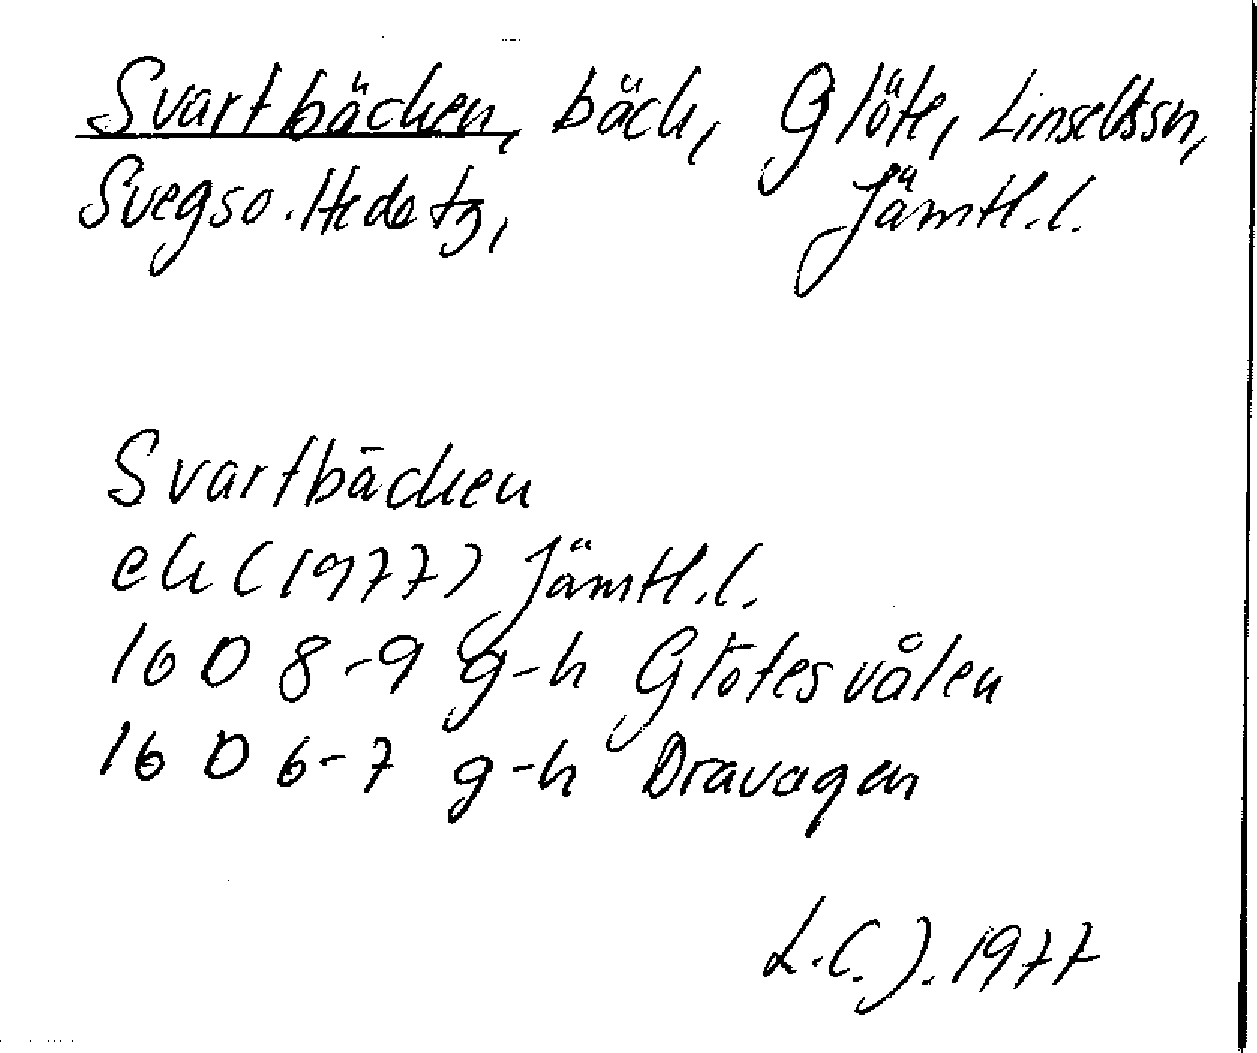 Svartbäcken, bäck, Glöte, Linsellssn,
Svegso.Hedetg, Jämtl.l.
Svartbäcken
ek (1977) Jämtl.l.
16 D 8-9 g-h Glötesvålen
16 D 6-7 g-h Dravagen
L.C.J. 1977